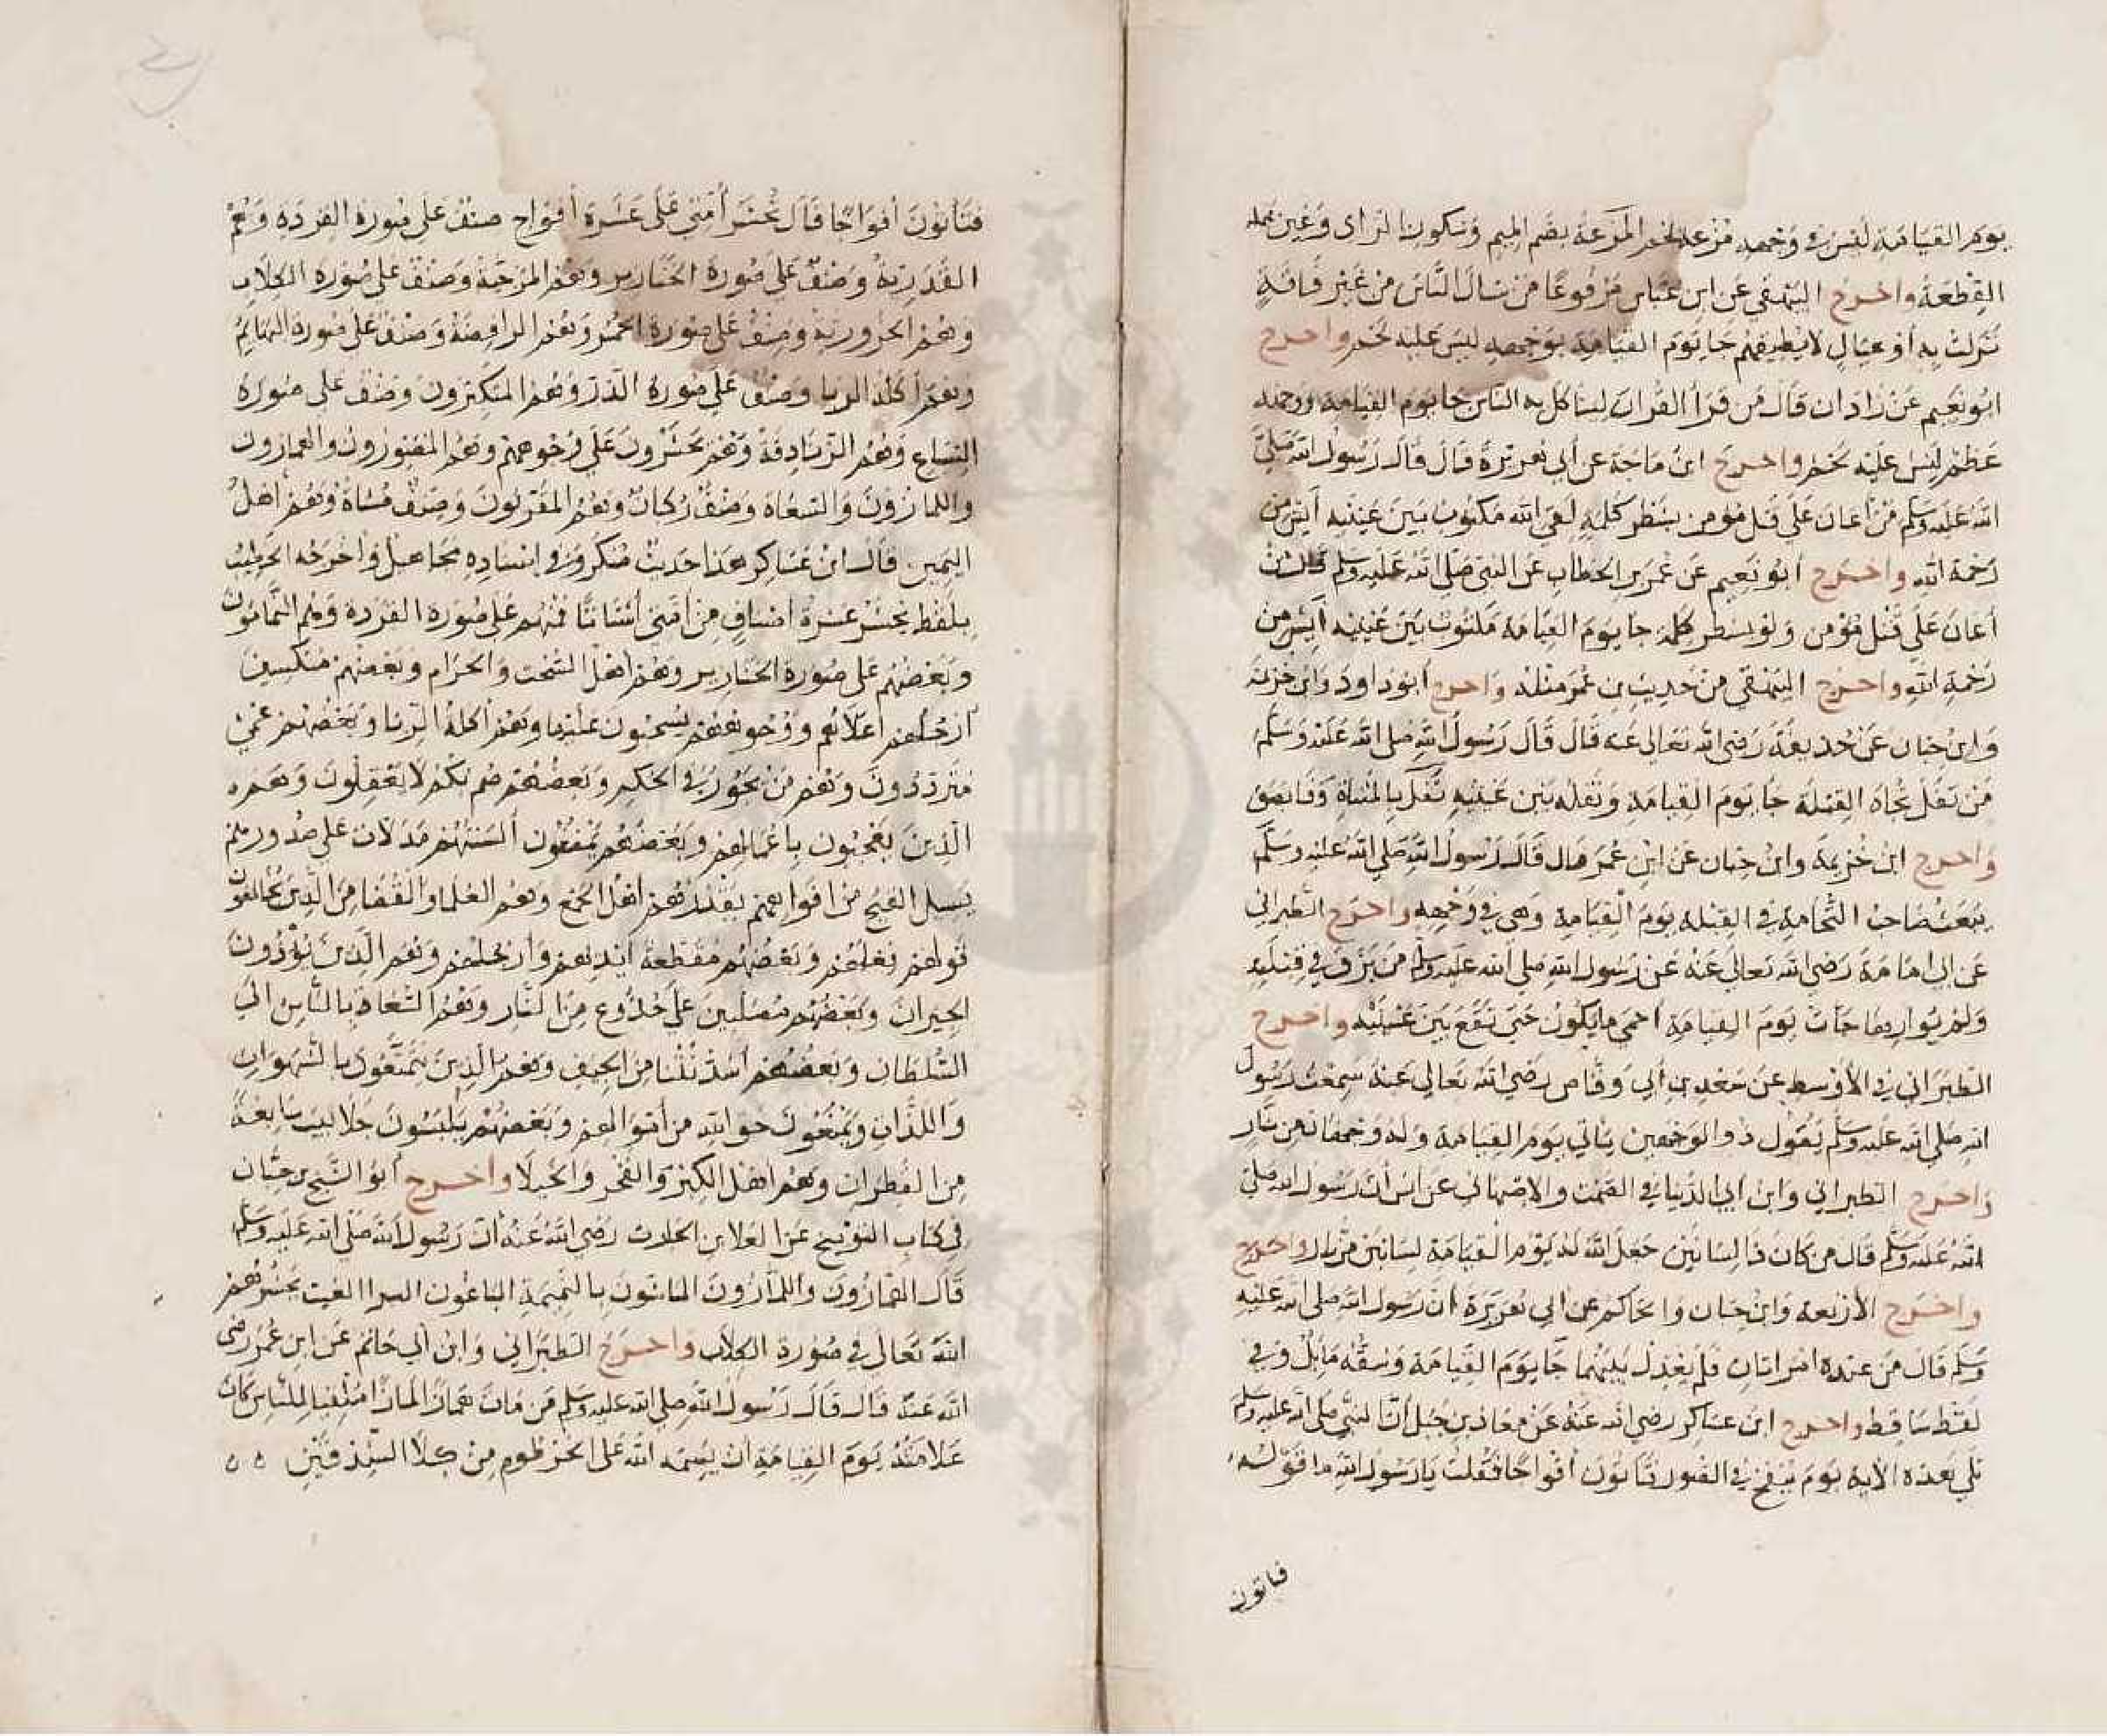 يوم القيامة ليس في وجهه مزعة لحم المزعة بضم الميم وسكون الزاى وعين مهمله
القطعة واخرج البيهقى عن ابن عباس مرفوعا من سال الناس من غير فاقة
نزلت به أو عيال لا يطيقهم جا يوم القيامة بوجه ليس عليه لحم واخرج
ابو نعيم عن زادان قال من قرأ القرآن ليتاكل به الناس جا يوم القيامة ووجهه
عظم ليس عليه لحم واخرج ابن ماجة عن أبي هريرة قال قال رسول الله صلى
الله عليه وسلم من أعان على قتل مؤمن بشطر كلمة لقى الله مكتوب بين عينيه آيس من
رحمة الله واخرج أبو نعيم عن عمر بن الخطاب عن النبي صلى الله عليه وسلم قال من
أعان على قتل مؤمن ولو بشطر كلمة جا يوم القيامة مكتوب بين عينيه آيس من
رحمة الله واخرج البيهقي من حديث بن عمر مثله واخرج أبو داود وابن خزيمة
وابن حبان عن حذيفة رضي الله تعالى عنه قال قال رسول الله صلى الله عليه وسلم
من تفل تجاه القبلة جا يوم القيامة وتفله بين عينيه تفل بالمثناة وفا بصق
واخرج ابن خزيمة وابن حبان عن ابن عمر قال قال رسول الله صلى الله عليه وسلم
يبعث صاحب النخامة في القبلة يوم القيامة وهى في وجهه واخرج الطبراني
عن ابى امامة رضي الله تعالى عنه عن رسول الله صلى الله عليه وسلم من بزق في قبلته
ولم يوارها جات يوم القيامة أحمى ما يكون حتى تقع بين عينيه واخرج
الطبراني في الأوسط عن سعد بن أبي وقاص رضي الله تعالى عنه سمعت رسول
الله صلى الله عليه وسلم يقول ذو الوجهين ياتي يوم القيامة وله وجهان من نار
واخرج الطبراني وابن أبي الدنيا في الصمت والاصبهاني عن انس أن رسول الله صلى
الله عليه وسلم قال من كان ذا لسانين جعل الله له يوم القيامة لسانين من نار واخرج
واخرج الأربعة وابن حبان والحاكم عن ابي هريرة أن رسول الله صلى الله عليه
وسلم قال من عنده امراتان فلم يعدل بينهما جا يوم القيامة وشقه مايل وفي
لفظ ساقط واخرج ابن عساكر رضي الله عنه عن معاذ بن جبل أن النبي صلى الله عليه وسلم
تلى هذه الآية يوم ينفخ في الصور فتأتون أفواجا فقلت يا رسول الله ما قوله
فتاتون
فتأتون أفواجا قال تحشر أمتي على عشرة أفواج صنف على صورة القردة وهم
القدرية وصنف على صورة الخنازير وهم المرجئة وصنف على صورة الكلاب
وهم الحرورية وصنف على صورة الحمر وهم الرافضة وصنف على صورة البهائم
وهم أكلة الربا وصنف على صورة الذر وهم المتكبرون وصنف على صورة
السباع وهم الزنادقة وهم يحشرون على وجوههم وهم المصورون والهمازون
واللمازون والسعاة وصنف ركبان وهم المقربون وصنف مشاة وهم أهل
اليمين قال ابن عساكر هذا حديث منكر وفي اسناده مجاهيل وأخرجه الخطيب
بلفظ يحشر عشرة اصناف من امتي أشتاتا فمنهم على صورة القردة وهم النمامون
وبعضهم على صورة الخنازير وهم أهل السحت والحرام وبعضهم منكسين
أرجلهم أعلاهم ووجوههم يسحبون عليها وهم أكلة الربا وبعضهم عمي
مترددون وهم من يجور في الحكم وبعضهم صم بكم لا يعقلون وهم
الذين يعجبون باعمالهم وبعضهم يمضغون ألسنتهم مدلات على صدورهم
يسيل القيح من افواههم يقذرهم أهل الجمع وهم العلما والقضا من الذين يخالف
قولهم فعلهم وبعضهم مقطعة أيديهم وأرجلهم وهم الذين يؤذون
الجيران وبعضهم مصلبين على جذوع من النار وهم السعاة بالناس الى
السلطان وبعضهم أشد نتنا من الجيف وهم الذين يتمتعون بالشهوات
واللذات ويمنعون حق الله من أموالهم وبعضهم يلبسون جلابيب سابغة
من القطران وهم أهل الكبر والفخر والخيلا واخرج أبو الشيخ بن حبان
في كتاب التوبيخ عن العلا بن الحارث رضي الله عنه أن رسول الله صلى الله عليه وسلم
قال الهمازون واللمازون الماشون بالنميمة الباغون البراا العيب يحشرهم
الله تعالى في صورة الكلاب واخرج الطبراني وابن أبي حاتم عن ابن عمر رضى
الله عنه قال قال رسول الله صلى الله عليه وسلم من مات همازا لمازا ملقبا للناس كان
علامته يوم القيامة أن يسمه الله على الخرطوم من كلا الشدقين